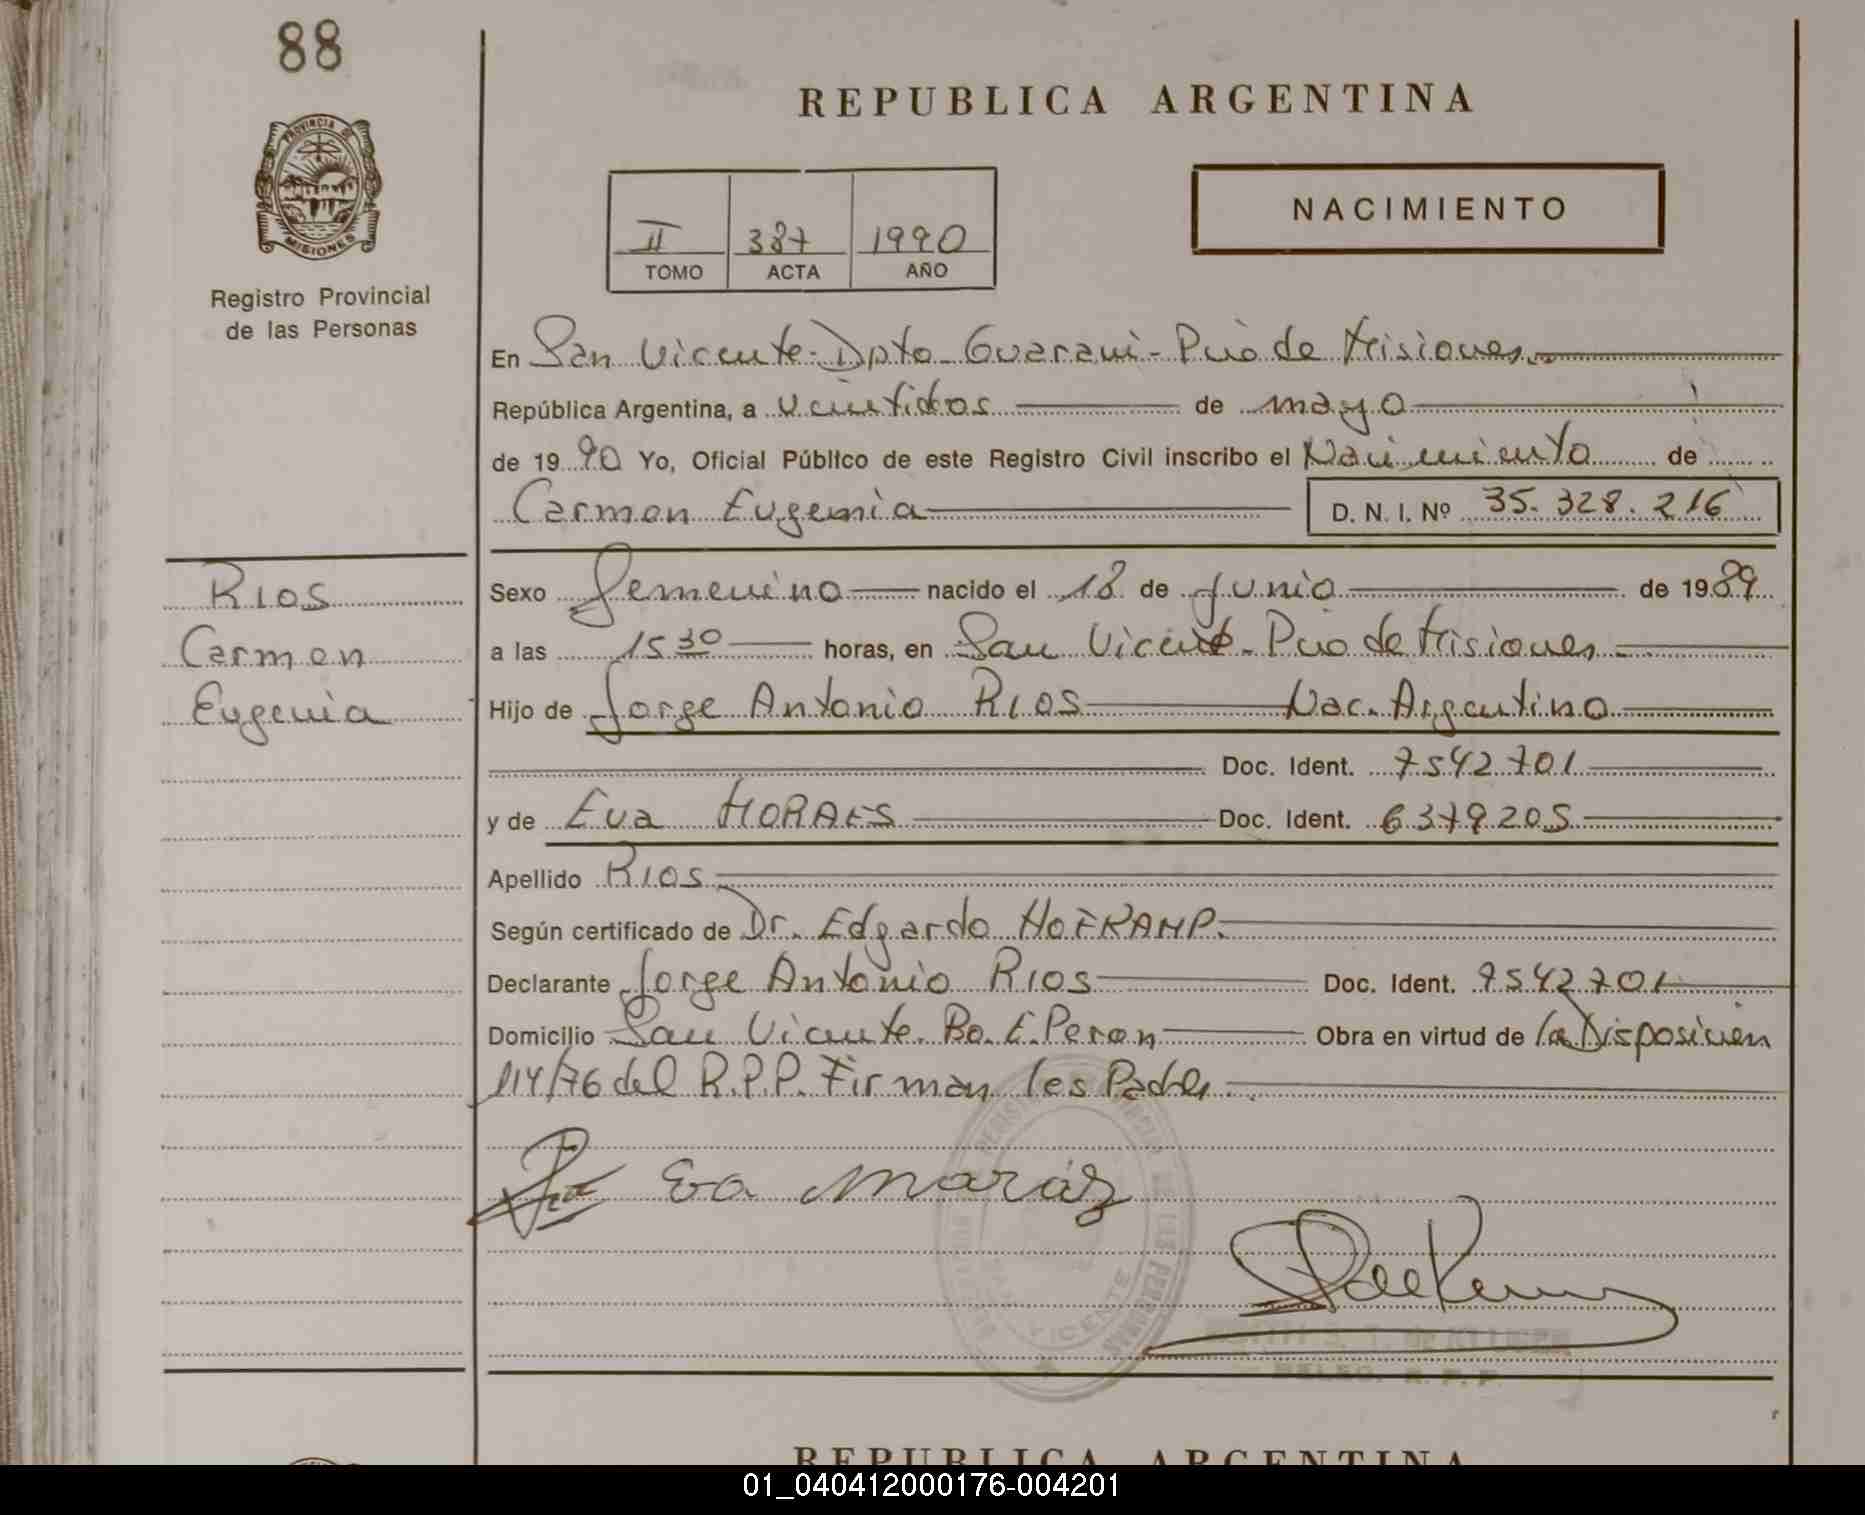 88
REPUBLICA ARGENTINA
PROVINCIA DE
MISIONES
Registro Provincial
de las Personas
II 387 1990
TOMO ACTA AÑO
NACIMIENTO
En San Vicente-Dpto Guarani-Pcio de Misiones
República Argentina, a veintidos de mayo
de 1990 Yo, Oficial Público de este Registro Civil inscribo el Nacimiento de
Carmen Eugenia D. N. I. Nº 35.328.216
RIOS
Carmen
Eugenia
Sexo Femenino nacido el 18 de Junio de 1989
a las 15 30 horas, en San Vicente-Pcio de Misiones
Hijo de Jorge Antonio RIOS Nac. Argentino
Doc. Ident. 7542701
y de Eva MORAES Doc. Ident. 6379205
Apellido RIOS
Según certificado de Dr. Edgardo HOFKAMP.
Declarante Jorge Antonio RIOS Doc. Ident. 7542701
Domicilio San Vicente. Bo. E. Peron Obra en virtud de la Disposicien
114/76 del R.P.P. Firman les Padres
Eva Moraez
VICENTE
DELEG. R. P. P.
REPUBLICA ARGENTINA
01_040412000176-004201